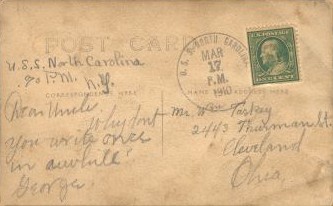 POST CARD
U.S.S. North Carolina
℅ P.M.
N.Y.
CORRESPONDENCE HERE
NAME AND ADDRESS HERE
U. S. S. NORTH CAROLINA
MAR
17
P.M.
1910
U.S. POSTAGE
ONE CENT
Dear Uncle,
Why dont
you write once
in awhile
George.
Mr. Wm Taskey
2443 Thurman St.
Cleveland
Ohio,